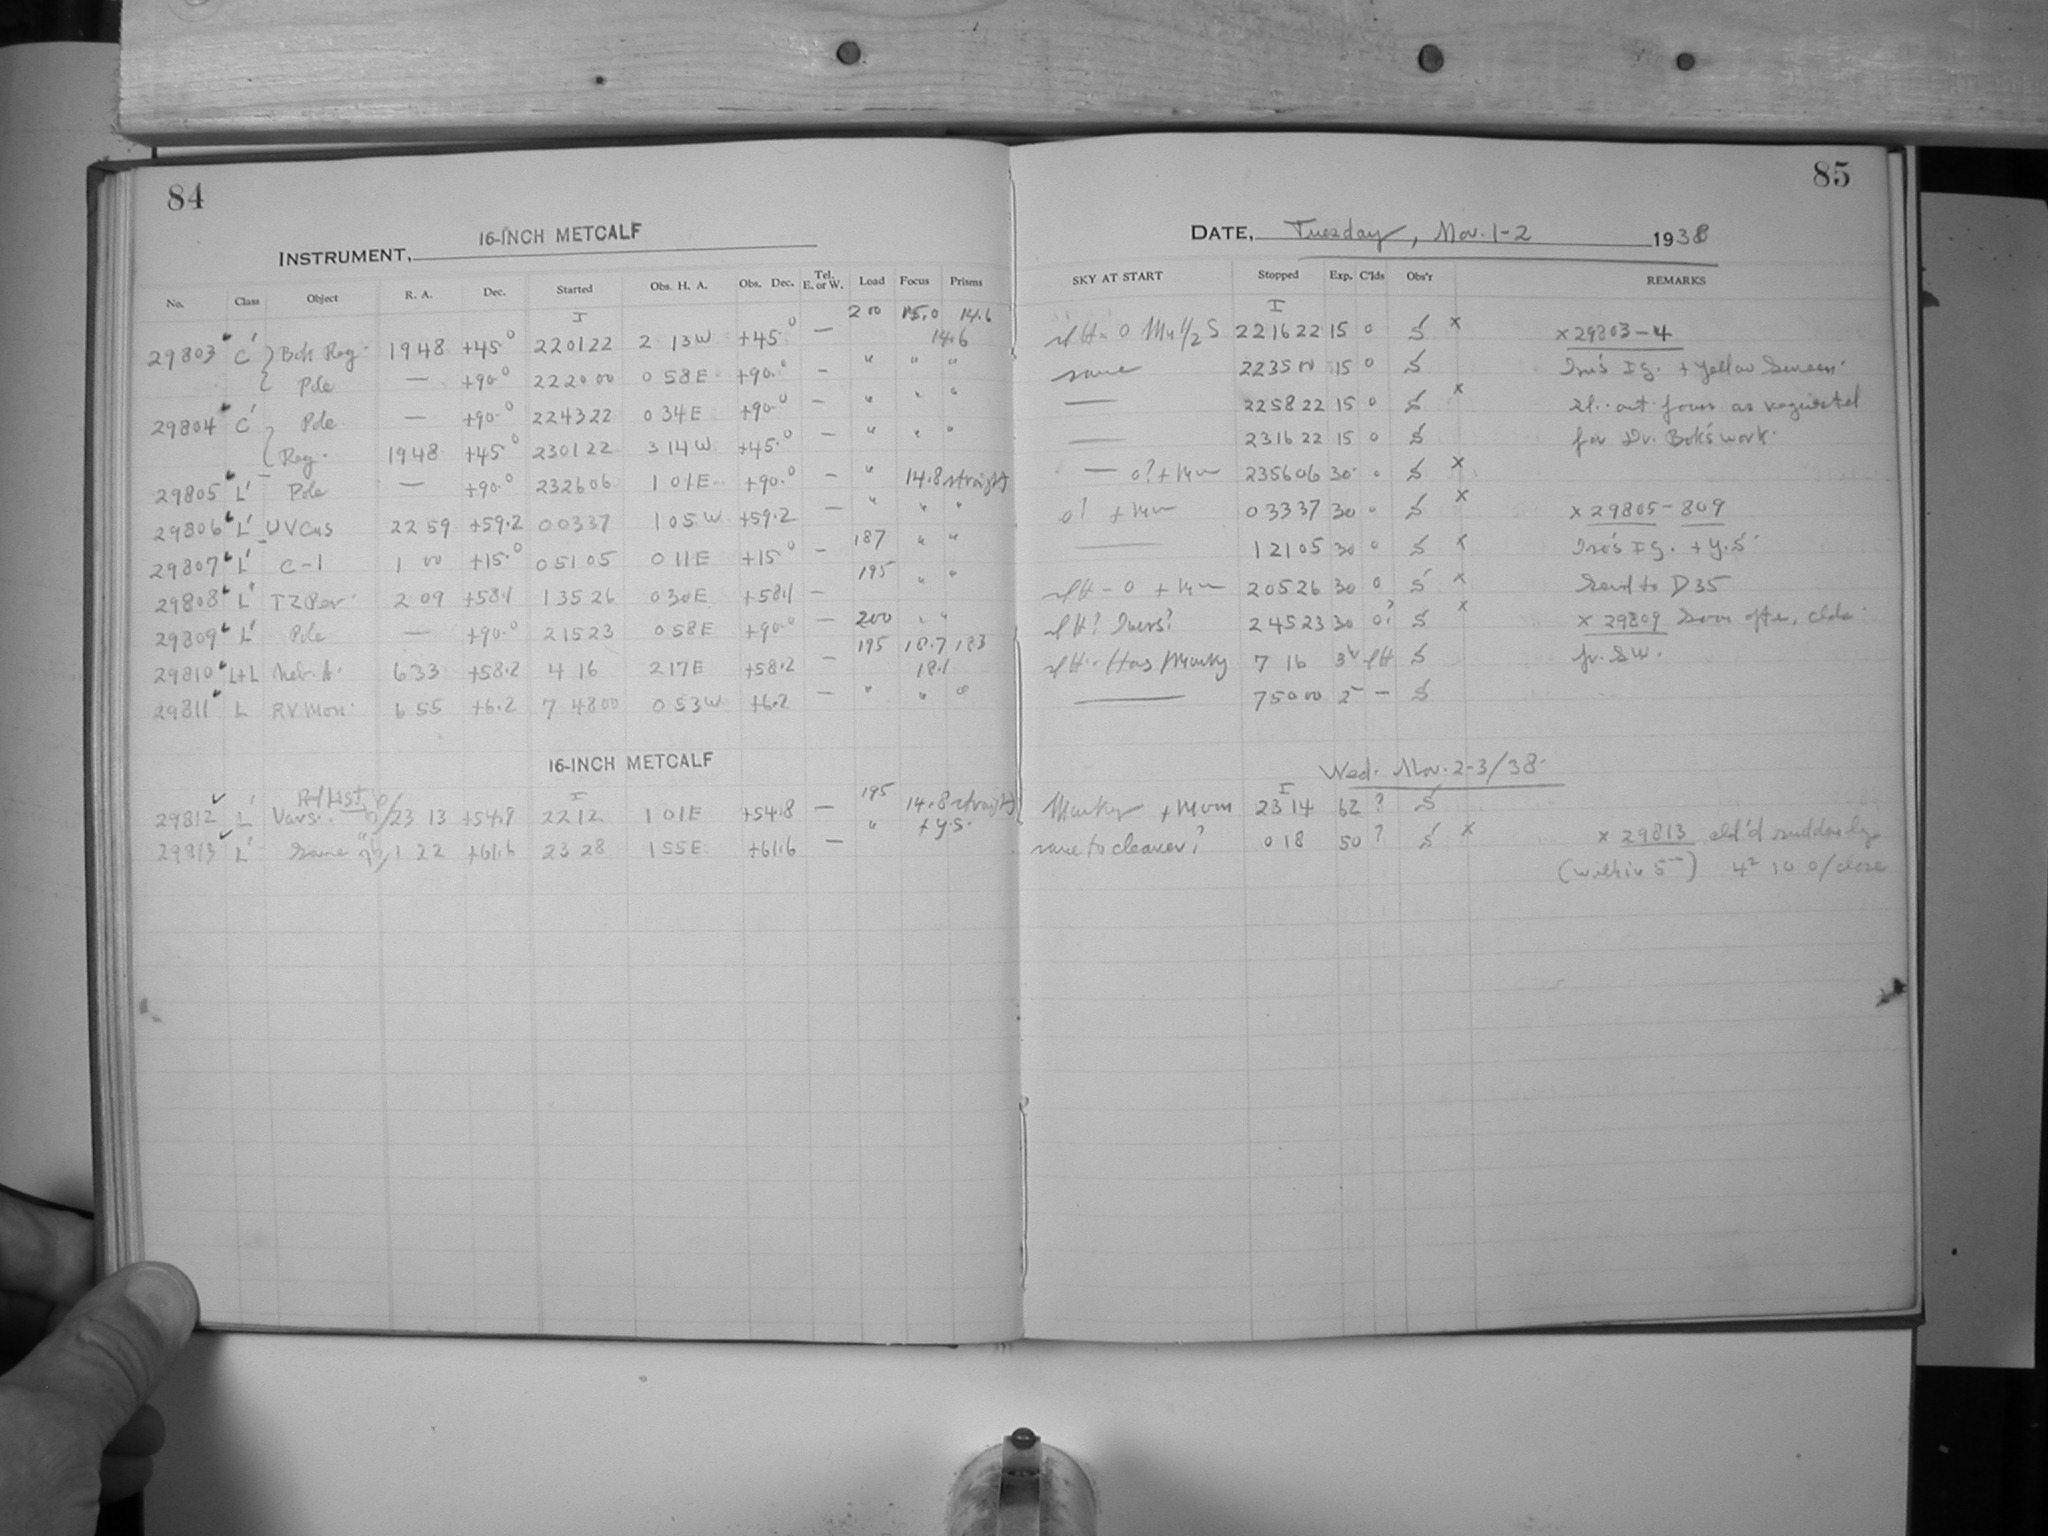 84
INSTRUMENT, 16-INCH METCALF
No. Class Object R. A. Dec. Started Obs. H. A. Obs. Dec. Tel. E. or W. Load Focus Prisms
I 200 15.0 14.6
29803 C' Bok Reg. 1948 +45.0 220122 2 13W +45.0 — 14.6
Pole — +90.0 222000 0 58E +90.0 — " " "
29804 C' Pole — +90.0 224322 0 34E +90.0 — " " "
Reg. 1948 +45.0 230122 3 14W +45.0 — " " "
29805 L' Pole — +90.0 232606 1 01E +90.0 — " 14.8 straight
29806 L' UV Cas 22 59 +59.2 0 03 37 1 05 W +59.2 — " " "
29807 L' C-1 1 00 +15.0 0 51 05 0 11E +15.0 — 187 " "
29808 L' TZ Per 2 09 +58.1 1 35 26 0 30E +58.1 — 195 " "
29809 L' Pole — +90.0 2 15 23 0 58E +90.0 — 200 " "
29810 L+L Neb. A. 6 33 +58.2 4 16 2 17E +58.2 — 195 18.7 18.3
18.1
29811 L RV Mon. 6 55 +6.2 7 48 00 0 53W +6.2 — " " "
16-INCH METCALF
29812 L' Vars. 23 13 +54.9 22 12 1 01E +54.8 — 195 14.8 straight
+ y.s.
29813 L' Same 1 22 +61.6 23 28 1 55E +61.6 — "
85
DATE, Tuesday, Nov. 1-2 1938
SKY AT START Stopped Exp. C'lds Obs'r REMARKS
I
221622 15 0 S x x 29803-4
same 2235 00 15 0 S + Yellow Screen.
— 225822 15 0 S x out focus as requested
— 231622 15 0 S for Dr. Bok's work.
— 0? + 235606 30 0 S x
0! + 0 33 37 30 0 S x x 29805-809
— 1 21 05 30 0 S x + y.s.
2 05 26 30 0 S x Send to D35
2 45 23 30 0? S x x 29809 Soon after, clds.
Has Murky 7 16 S fr. SW.
— 7 50 00 2 — S
Wed. Nov. 2-3/38.
I
Murky + Moon 23 14 62 ? S
same to clearer? 0 18 50 ? S x x 29813 cld'd suddenly
(within 5m) 10 0/close